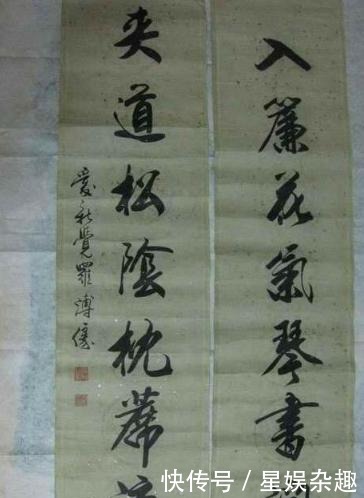 入簾花氣琴書
夾道松陰枕蓆
愛新覺羅溥
快传号/星娱杂趣